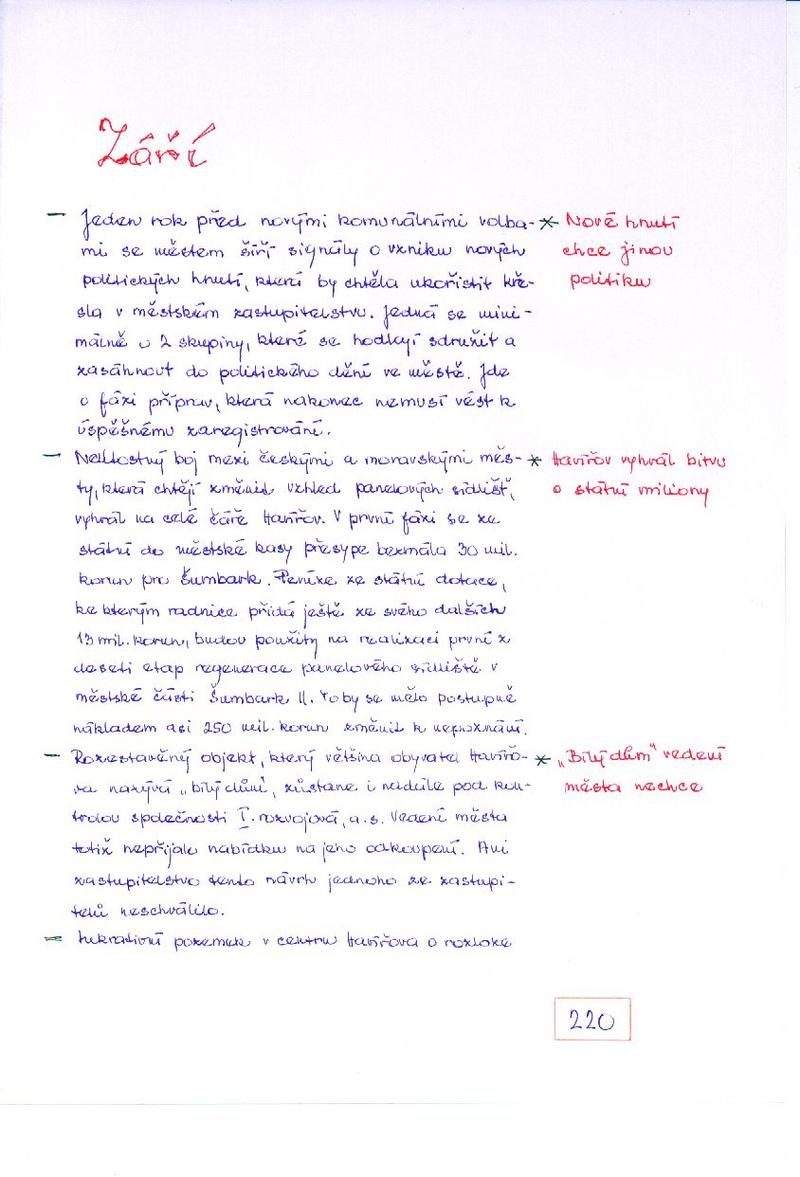 Září
— Jeden rok před novými komunálními volba- * Nové hnutí
mi se městem šíří signály o vzniku nových chce jinou
politických hnutí, která by chtěla ukořistit kře- politiku
sla v městském zastupitelstvu. Jedná se mini-
málně o 2 skupiny, které se hodlají sdružit a
zasáhnout do politického dění ve městě. Jde
o fázi příprav, která nakonec nemusí vést k
úspěšnému zaregistrování.
— Nelítostný boj mezi českými a moravskými měs- * Havířov vyhrál bitvu
ty, která chtějí změnit vzhled panelových sídlišť, o státní miliony
vyhrál na celé čáře Havířov. V první fázi se ze
státní do městské kasy přesype bezmála 30 mil.
korun pro Šumbark. Peníze ze státní dotace,
ke kterým radnice přidá ještě ze svého dalších
13 mil. korun, budou použity na realizaci první z
deseti etap regenerace panelového sídliště v
městské části Šumbark II. To by se mělo postupně
nákladem asi 250 mil. korun změnit k nepoznání.
— Rozestavěný objekt, který většina obyvatel Havířo- * „Bílý dům" vedení
va nazývá „bílý dům", zůstane i nadále pod kon- města nechce
trolou společnosti I. rozvojová, a.s. Vedení města
totiž nepřijalo nabídku na jeho odkoupení. Ani
zastupitelstvo tento návrh jednoho ze zastupi-
telů neschválilo.
— Lukrativní pozemek v centru Havířova o rozloze
220